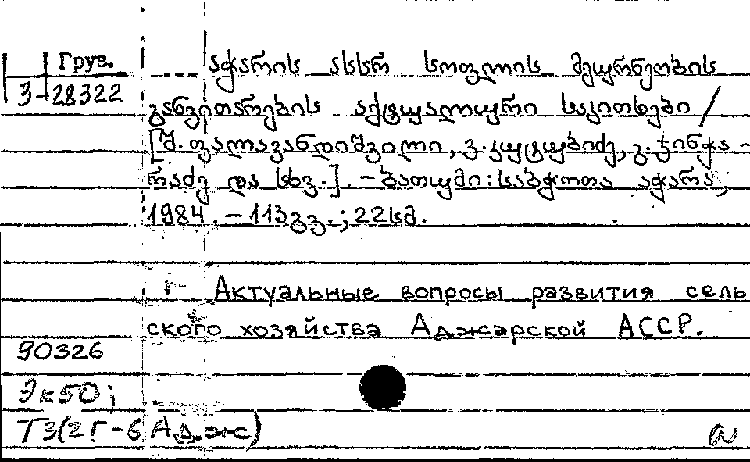 Груз.
3-28322
აჭარის ასსრ სოფლის მეურნეობის
განვითარების აქტუალური საკითხები /
[შ. ფალავანდიშვილი, ვ. კუტუბიძე, გ. ჯინჭა-
რაძე და სხვ.]. - ბათუმი: საბჭოთა აჭარა,
1984. - 113გვ.; 22სმ.
Актуальные вопросы развития сель
ского хозяйства Аджарской АССР.
90326
Эк50;
Т3(2Г-6Адж)